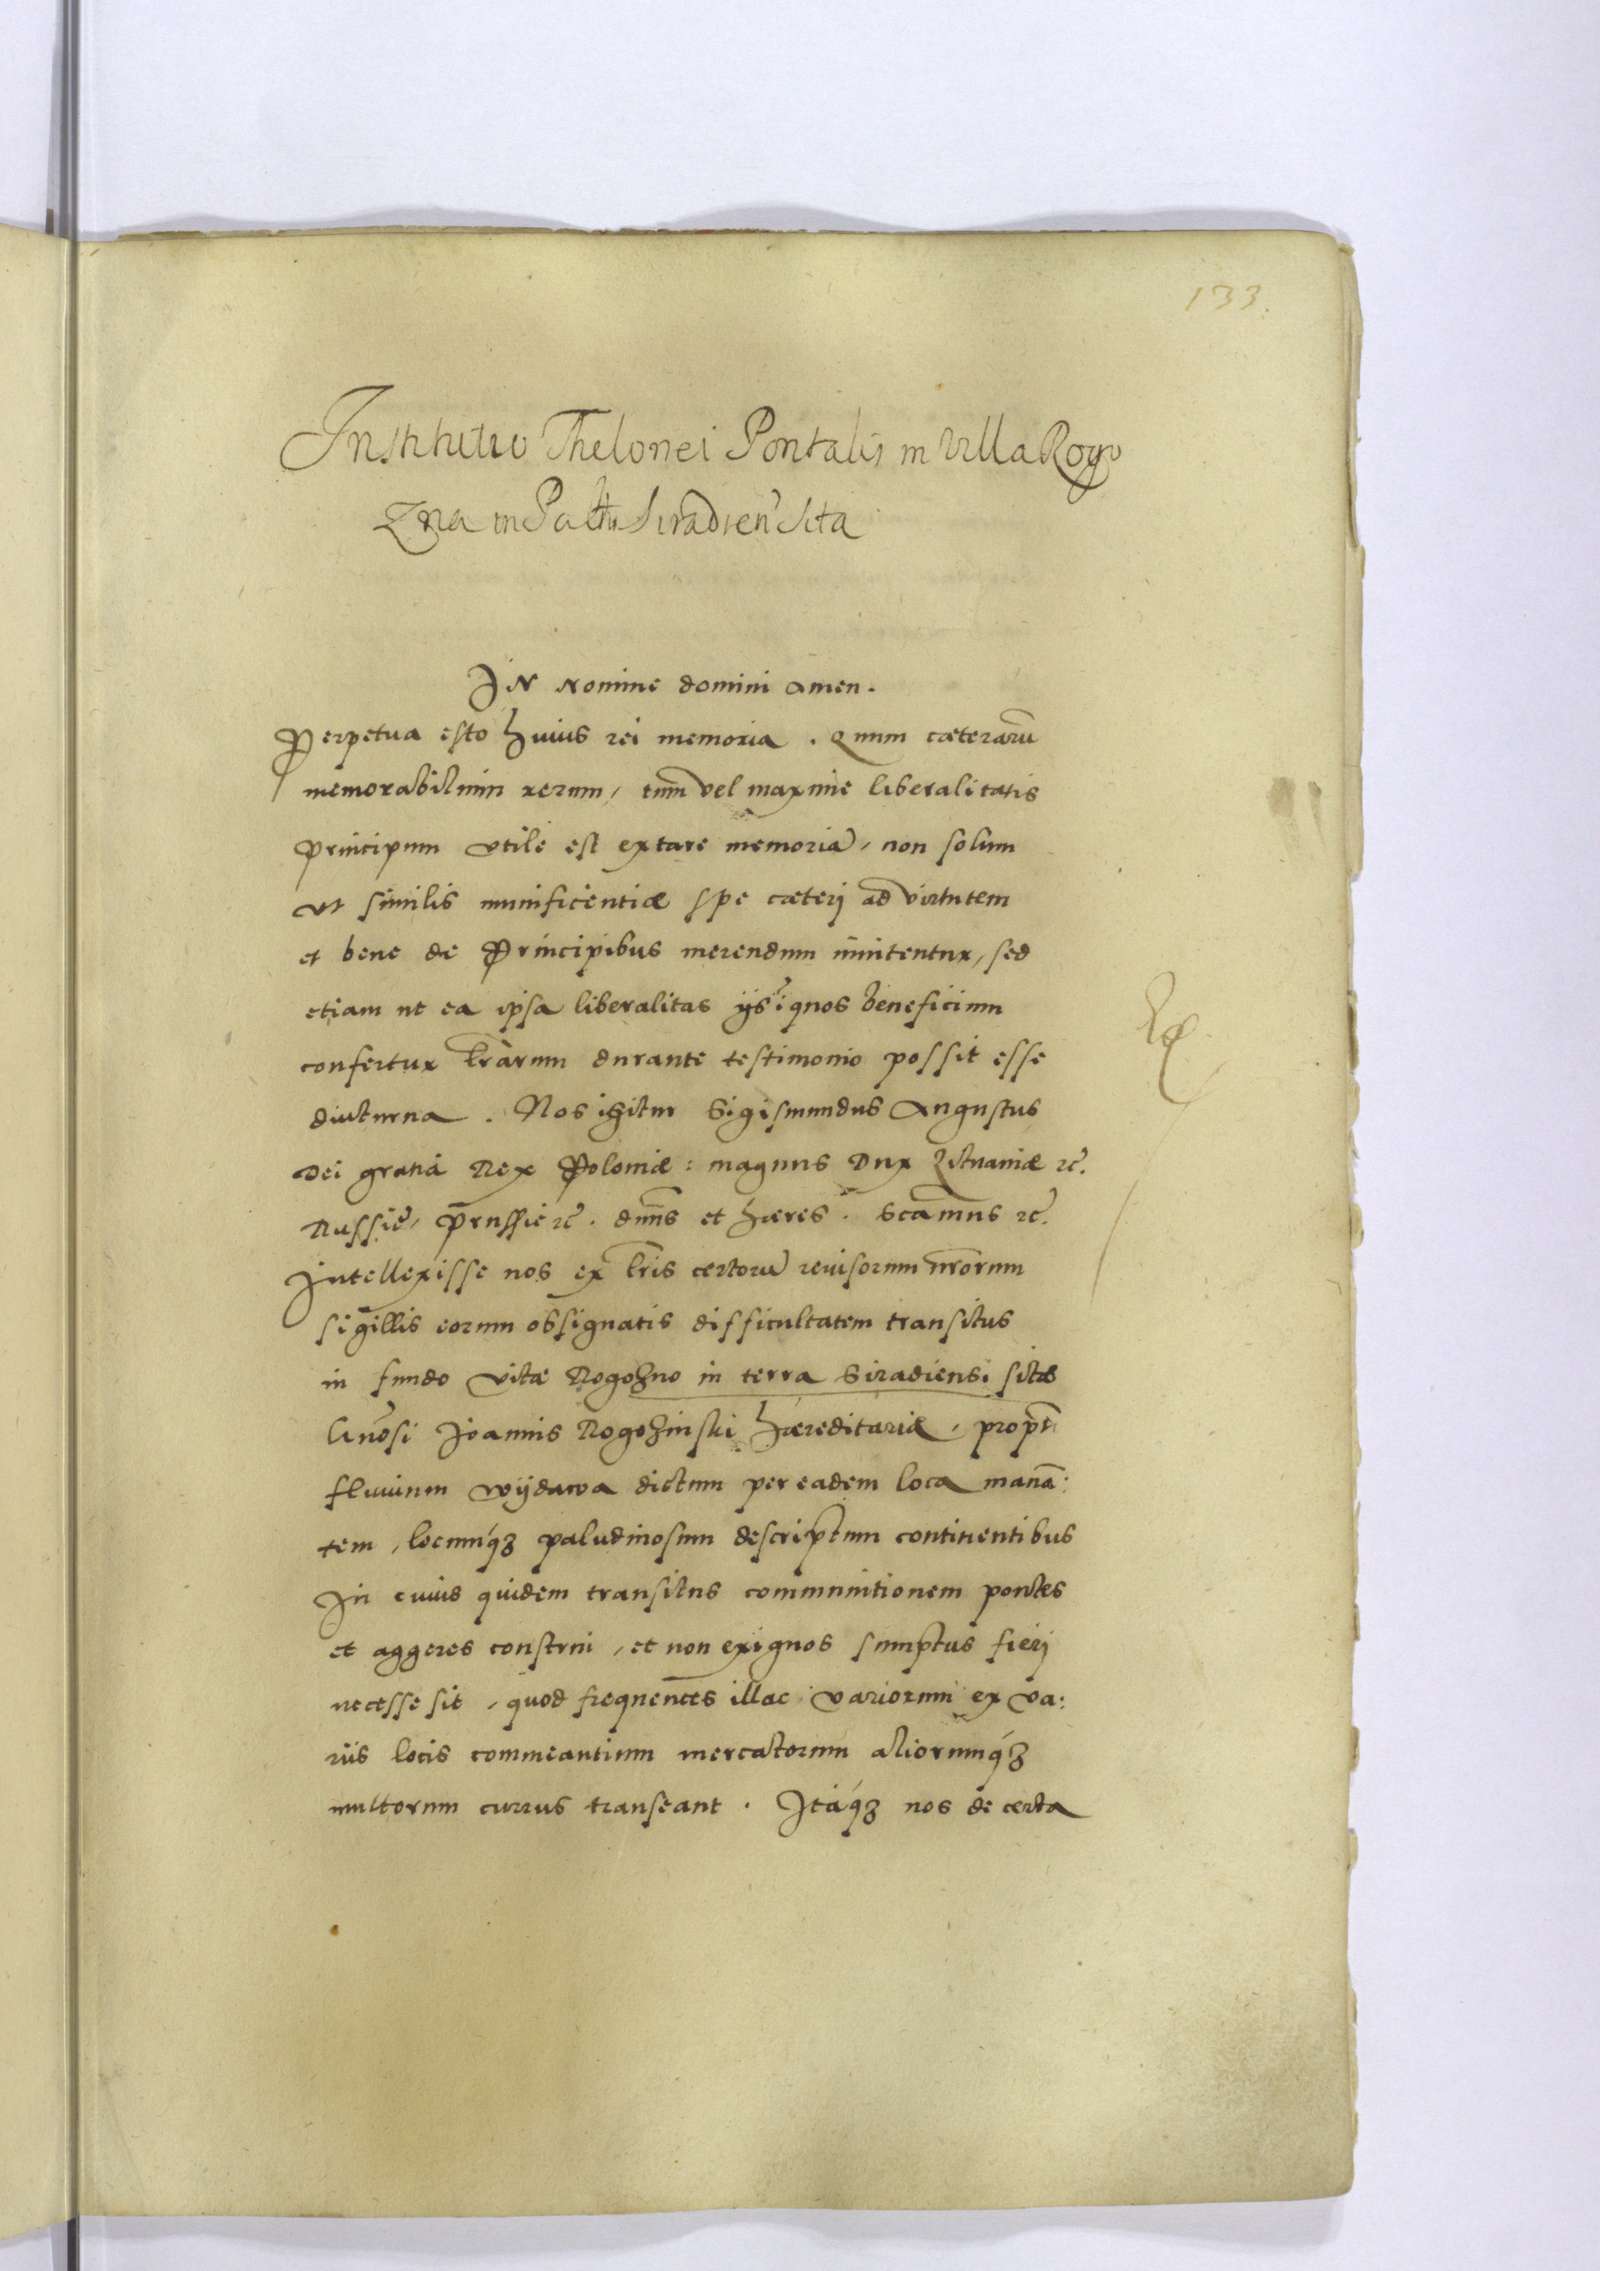 133.
Institutio Thelonei Pontalis in Villa Rogo
zna in Paltu Siradien̄ sita
IN Nomine domini amen.
Perpetua esto huius rei memoria. Quum cæterarū
memorabilium rerum, tum̄ vel maxime liberalitatis
Principum vtile est extare memoriā, non solum
vt similis munificentiæ spe cæterj ad virtutem
et bene de Principibus merendum innitentur, sed
etiam ut ea ipsa liberalitas ijs ī quos beneficium
confertur lr̄arum durante testimonio possit esse
diuturna. Nos igitur Sigismundus Augustus
Dei gratia Rex Poloniæ: magnus Dux Lituaniæ ꝛc̄.
Russiē, Pr̄ussie ꝛc̄. dnn̄s et hæres. Scām̄us ꝛc̄.
Intellexisse nos ex lr̄is certorū reuisorum nr̄orum
sigillis eorum obsignatis difficultatem transitus
in fundo vilæ Rogozno in terra Siradiensi sitæ
Gn̄osi Joannis Rogozinski hæreditariæ, propt̄
fluuium wÿdawa dictum per eadem loca manā:
tem, locumqꝫ paludinosum descriptum continentibus
In cuius quidem transitus communitionem pontes
et aggeres construi, et non exiguos sumptus fierj
necesse sit, quod frequentes illac variorum ex va:
riis locis commeantium mercatorum aliorumqꝫ
multorum currus transeant. Itaqꝫ nos de certa